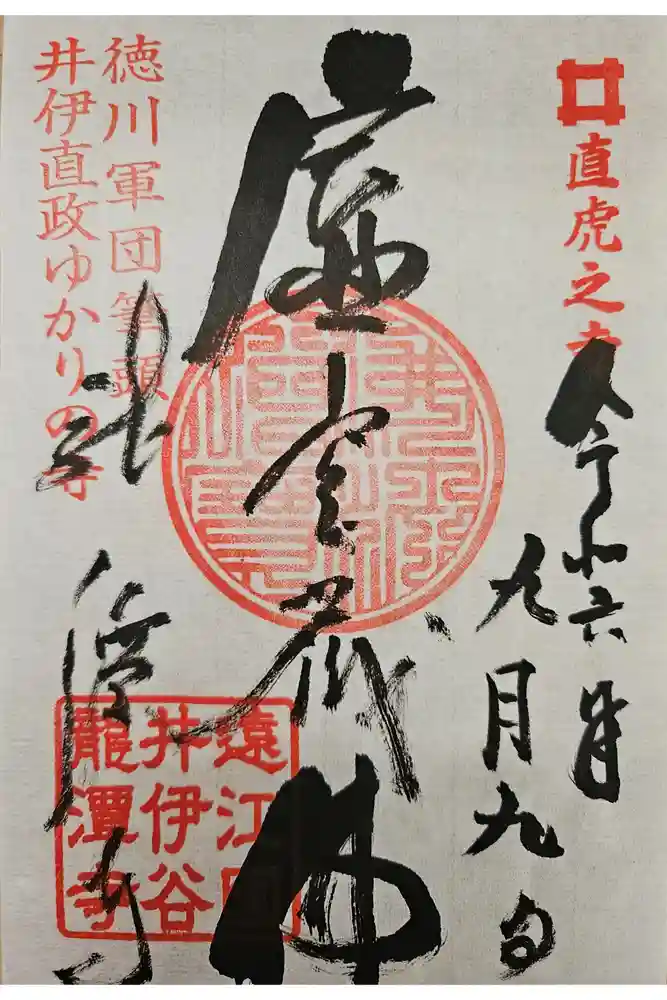 直虎之寺
令和六年
九月九日
虚空蔵佛
徳川軍団筆頭
井伊直政ゆかりの寺
龍潭寺
遠江国
井伊谷
龍潭寺